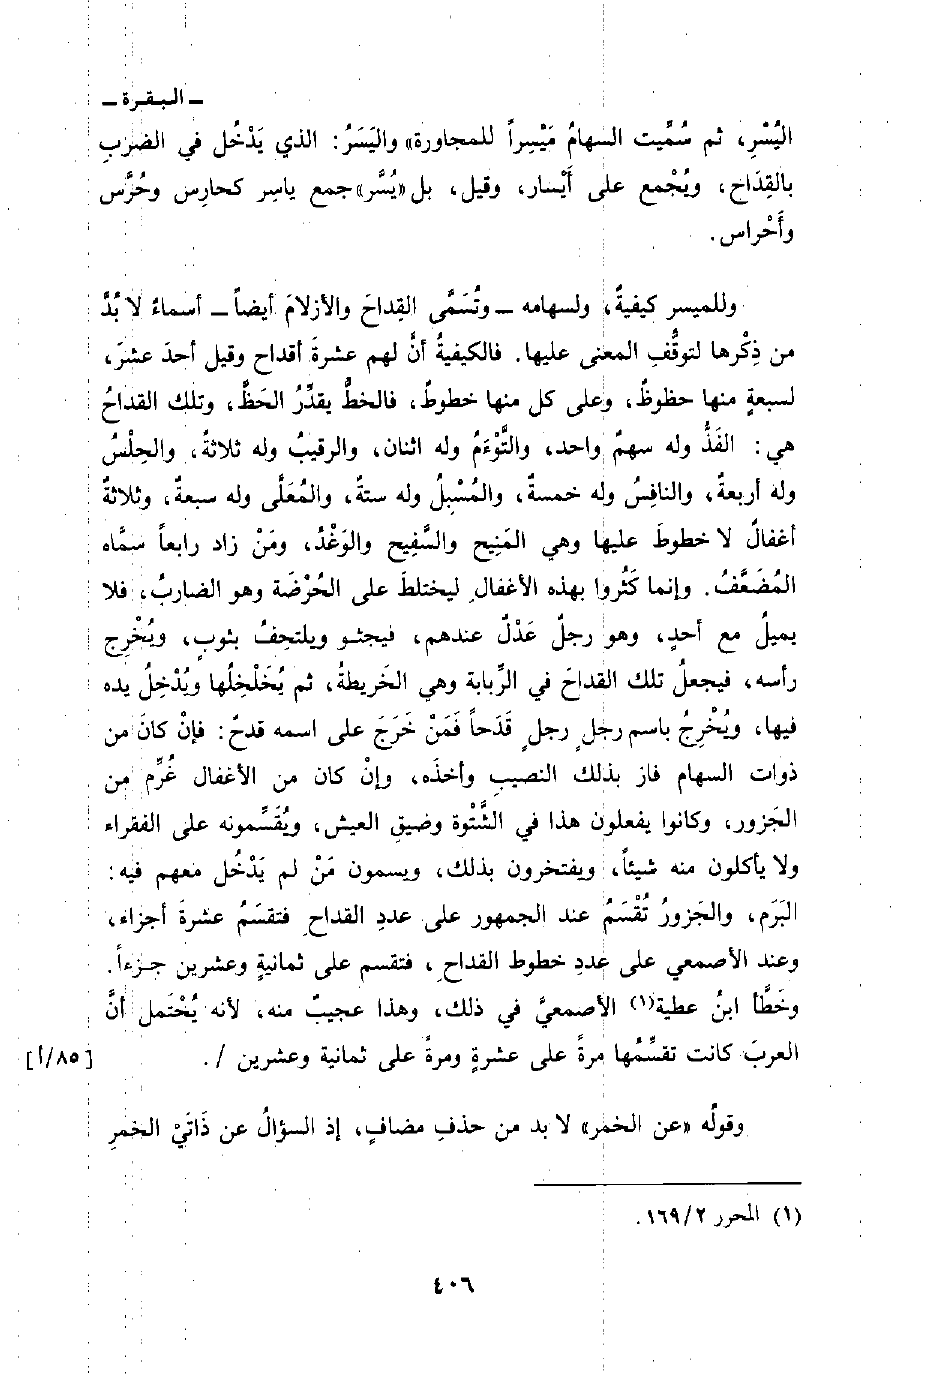 ـ البقرة ـ
اليُسْرِ، ثم سُمِّيت السهامُ مَيْسِراً للمجاورة» واليَسَرُ: الذي يَدْخُل في الضربِ
بالقِدَاح، ويُجْمع على أَيْسار، وقيل، بل «يُسَّر» جمع ياسِر كحارِس وحُرَّس
وأَحْراس.
وللميسر كيفيةٌ، ولسهامه ـ وتُسَمَّى القِداحَ والأزلامَ أيضاً ـ أسماءٌ لا بُدَّ
من ذِكْرها لتوقُّفِ المعنى عليها. فالكيفيةُ أنَّ لهم عشرةَ أقداح وقيل أحدَ عشرَ،
لسبعةٍ منها حظوظٌ، وعلى كل منها خطوطٌ، فالخطُّ يقدِّرُ الحَظَّ، وتلك القداحُ
هي: الفَذُّ وله سهمٌ واحد، والتَّوْءَمُ وله اثنان، والرقيبُ وله ثلاثةٌ، والحِلْسُ
وله أربعةٌ، والنافِسُ وله خمسةٌ، والمُسْبِلُ وله ستةٌ، والمُعَلَّى وله سبعةٌ، وثلاثةٌ
أغفالٌ لا خطوطَ عليها وهي المَنِيح والسَّفِيح والوَغْدُ، ومَنْ زاد رابعاً سمَّاه
المُضَعَّفُ. وإنما كَثُروا بهذه الأغفالِ ليختلطَ على الحُرْضَة وهو الضاربُ، فلا
يميلُ مع أحدٍ، وهو رجلٌ عَدْلٌ عندهم، فيجثو ويلتحِفُ بثوبٍ، ويُخْرِج
رأسه، فيجعلُ تلك القداحَ في الرِّبابة وهي الخَريطةُ، ثم يُخَلْخِلُها ويُدْخِلُ يده
فيها، ويُخْرِجُ باسم رجلٍ رجلٍ قَدَحاً فَمَنْ خَرَجَ على اسمه قدحٌ: فإنْ كانَ من
ذوات السهام فاز بذلك النصيبِ وأخذَه، وإنْ كان من الأغفال غُرِّم من
الجَزور، وكانوا يفعلون هذا في الشَّتْوة وضيقِ العيش، ويُقَسِّمونه على الفقراء
ولا يأكلون منه شيئاً، ويفتخرون بذلك، ويسمون مَنْ لم يَدْخُل معهم فيه:
البَرَم، والجَزورُ تُقْسَمُ عند الجمهور على عددِ القداحِ فتقسَمُ عشرةَ أجزاء،
وعند الأصمعي على عددِ خطوط القداحِ، فتقسم على ثمانيةٍ وعشرين جزءاً.
وخَطَّأ ابنُ عطية(١) الأصمعيَّ في ذلك، وهذا عجيبٌ منه، لأنه يُحْتمل أنَّ
العربَ كانت تقسِّمُها مرةً على عشرةٍ ومرةً على ثمانية وعشرين /. [٨٥/أ]
وقولُه «عن الخمر» لا بد من حذفِ مضافٍ، إذ السؤالُ عن ذَاتَيْ الخمرِ
(١) المحرر ١٦٩/٢.
٤٠٦